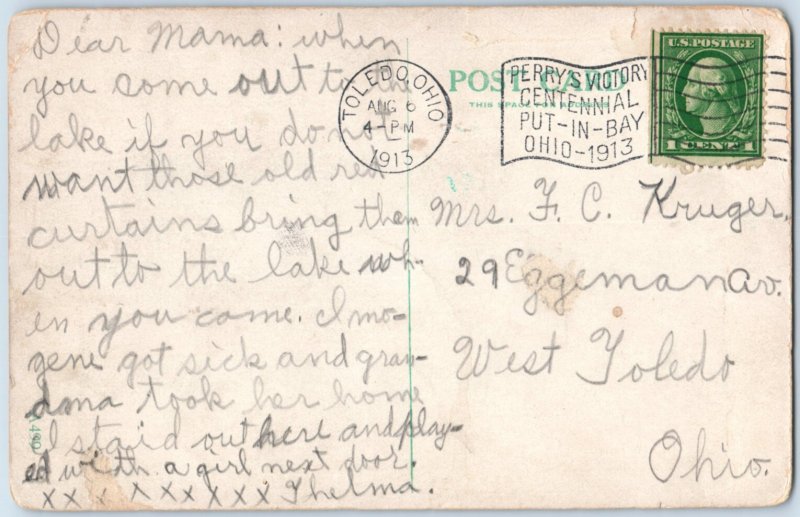 Dear Mama: when
you come out to the
lake if you don't
want those old red
curtains bring them
out to the lake wh-
en you come. Imo-
gene got sick and gran-
dma took her home
I staid out here and play-
ed with a girl next door.
x x x x x x x x x Thelma.
POST CARD
THIS SPACE FOR ADDRESS
TOLEDO, OHIO
AUG 6
4-PM
1913
PERRY'S VICTORY
CENTENNIAL
PUT-IN-BAY
OHIO-1913
U.S. POSTAGE
1 CENT 1
Mrs. F. C. Kruger,
29 Eggeman Av.
West Toledo
Ohio.